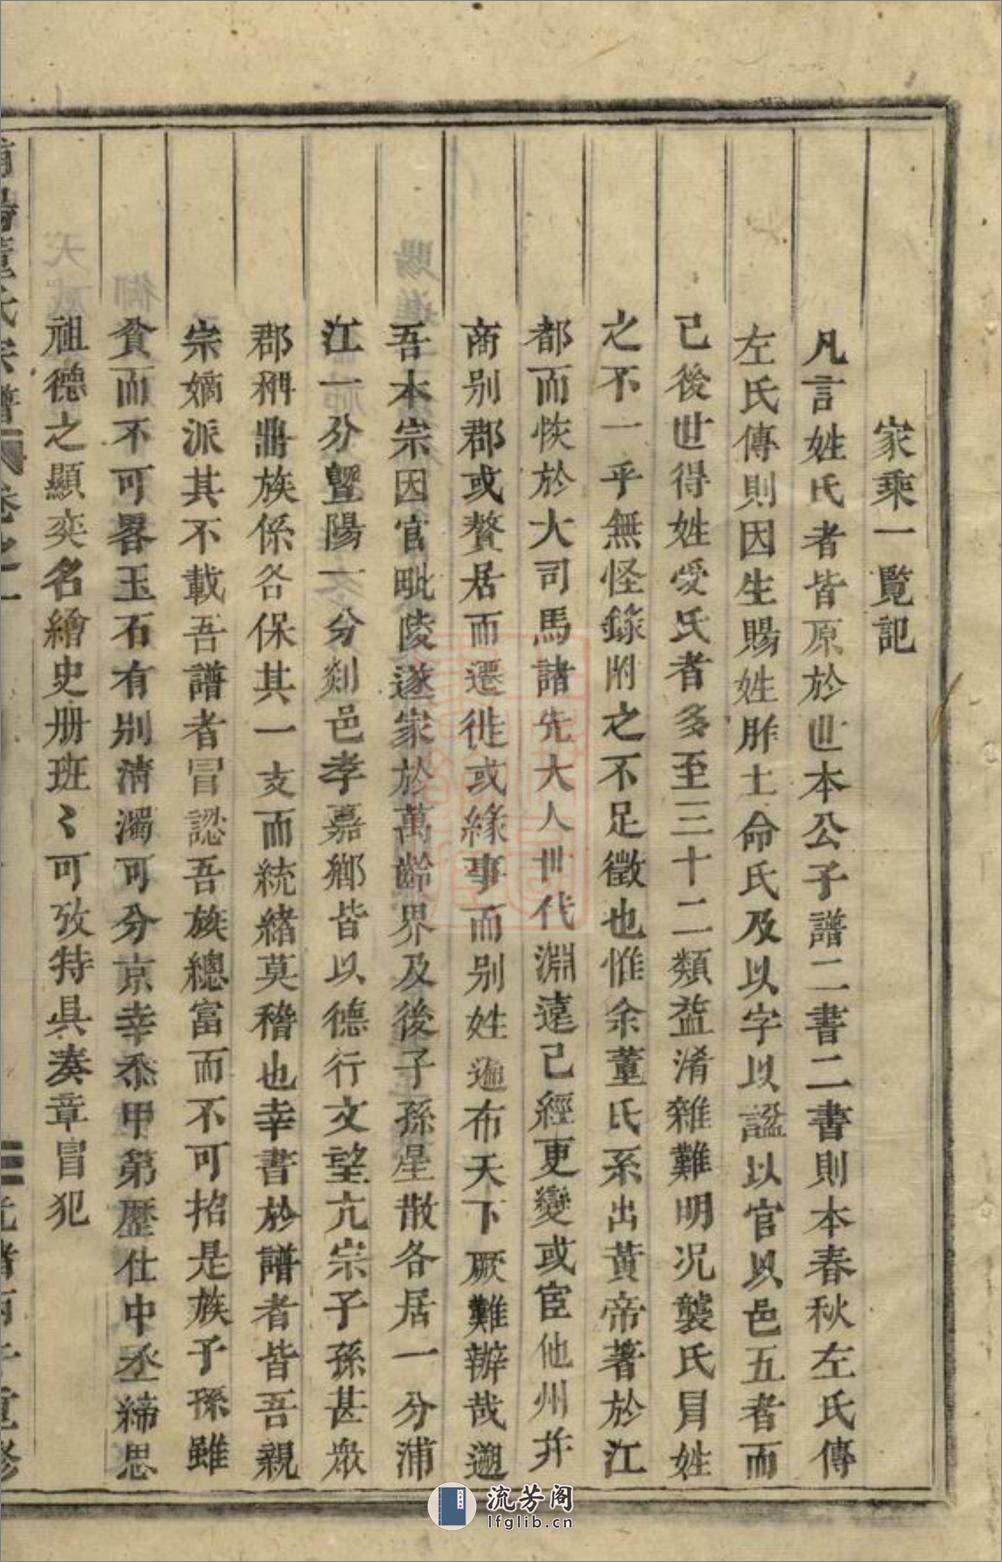 家乘一覽記
凡言姓氏者皆原於世本公子譜二書二書則本春秋左氏傳
左氏傳則因生賜姓胙土命氏及以字以諡以官以邑五者而
已後世得姓受氏者多至三十二類益淆雜難明况襲氏冐姓
之不一乎無怪錄附之不足徵也惟余董氏系出黃帝著於江
都而恢於大司馬諸先大人世代淵遠已經更變或宦他州并
商别郡或贅居而遷徙或緣事而别姓遍布天下厥難辦哉遡
吾本宗因官毗陵遂家於萬齡界及後子孫星散各居一分浦
江一分曁陽一分剡邑孝嘉鄉皆以德行文望亢宗子孫甚眾
郡稱鼎族係各保其一支而統緒莫稽也幸書於譜者皆吾親
宗嫡派其不載吾譜者冒認吾族總富而不可招是族子孫雖
貧而不可畧玉石有别清濁可分京幸忝甲第歷仕中丞締思
祖德之顯奕名繪史册班〻可攷特具凑章冒犯
董氏宗譜 卷之一 光緒丙子重修
流芳阁
lfglib.cn